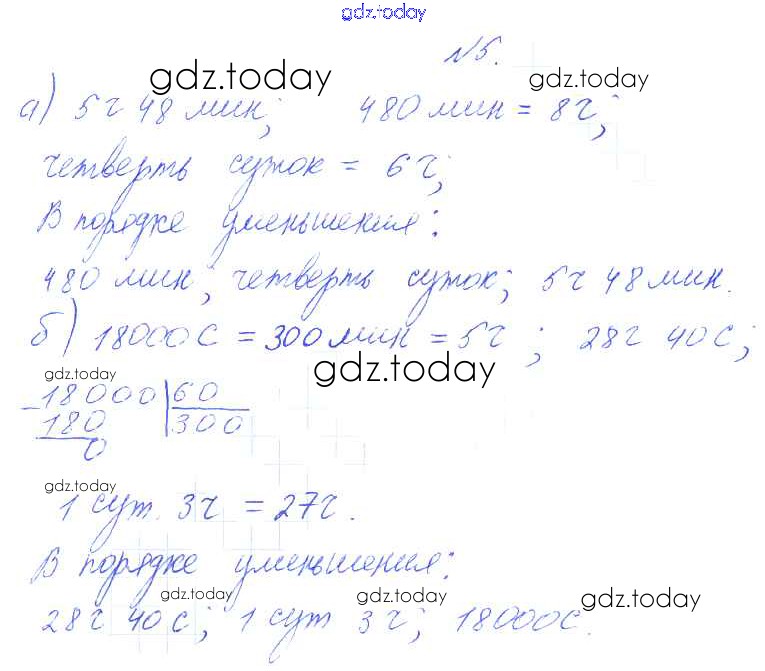 gdz.today
№5.
gdz.today gdz.today
а) 5ч 48 мин; 480 мин = 8ч;
четверть суток = 6ч;
В порядке уменьшения:
480 мин; четверть суток; 5ч 48 мин.
б) 18000с = 300 мин = 5ч; 28ч 40с;
gdz.today gdz.today
- 18000 | 60
180 300
0
gdz.today
1 сут. 3ч = 27ч.
В порядке уменьшения:
gdz.today gdz.today gdz.today
28ч 40с; 1 сут 3ч; 18000с.